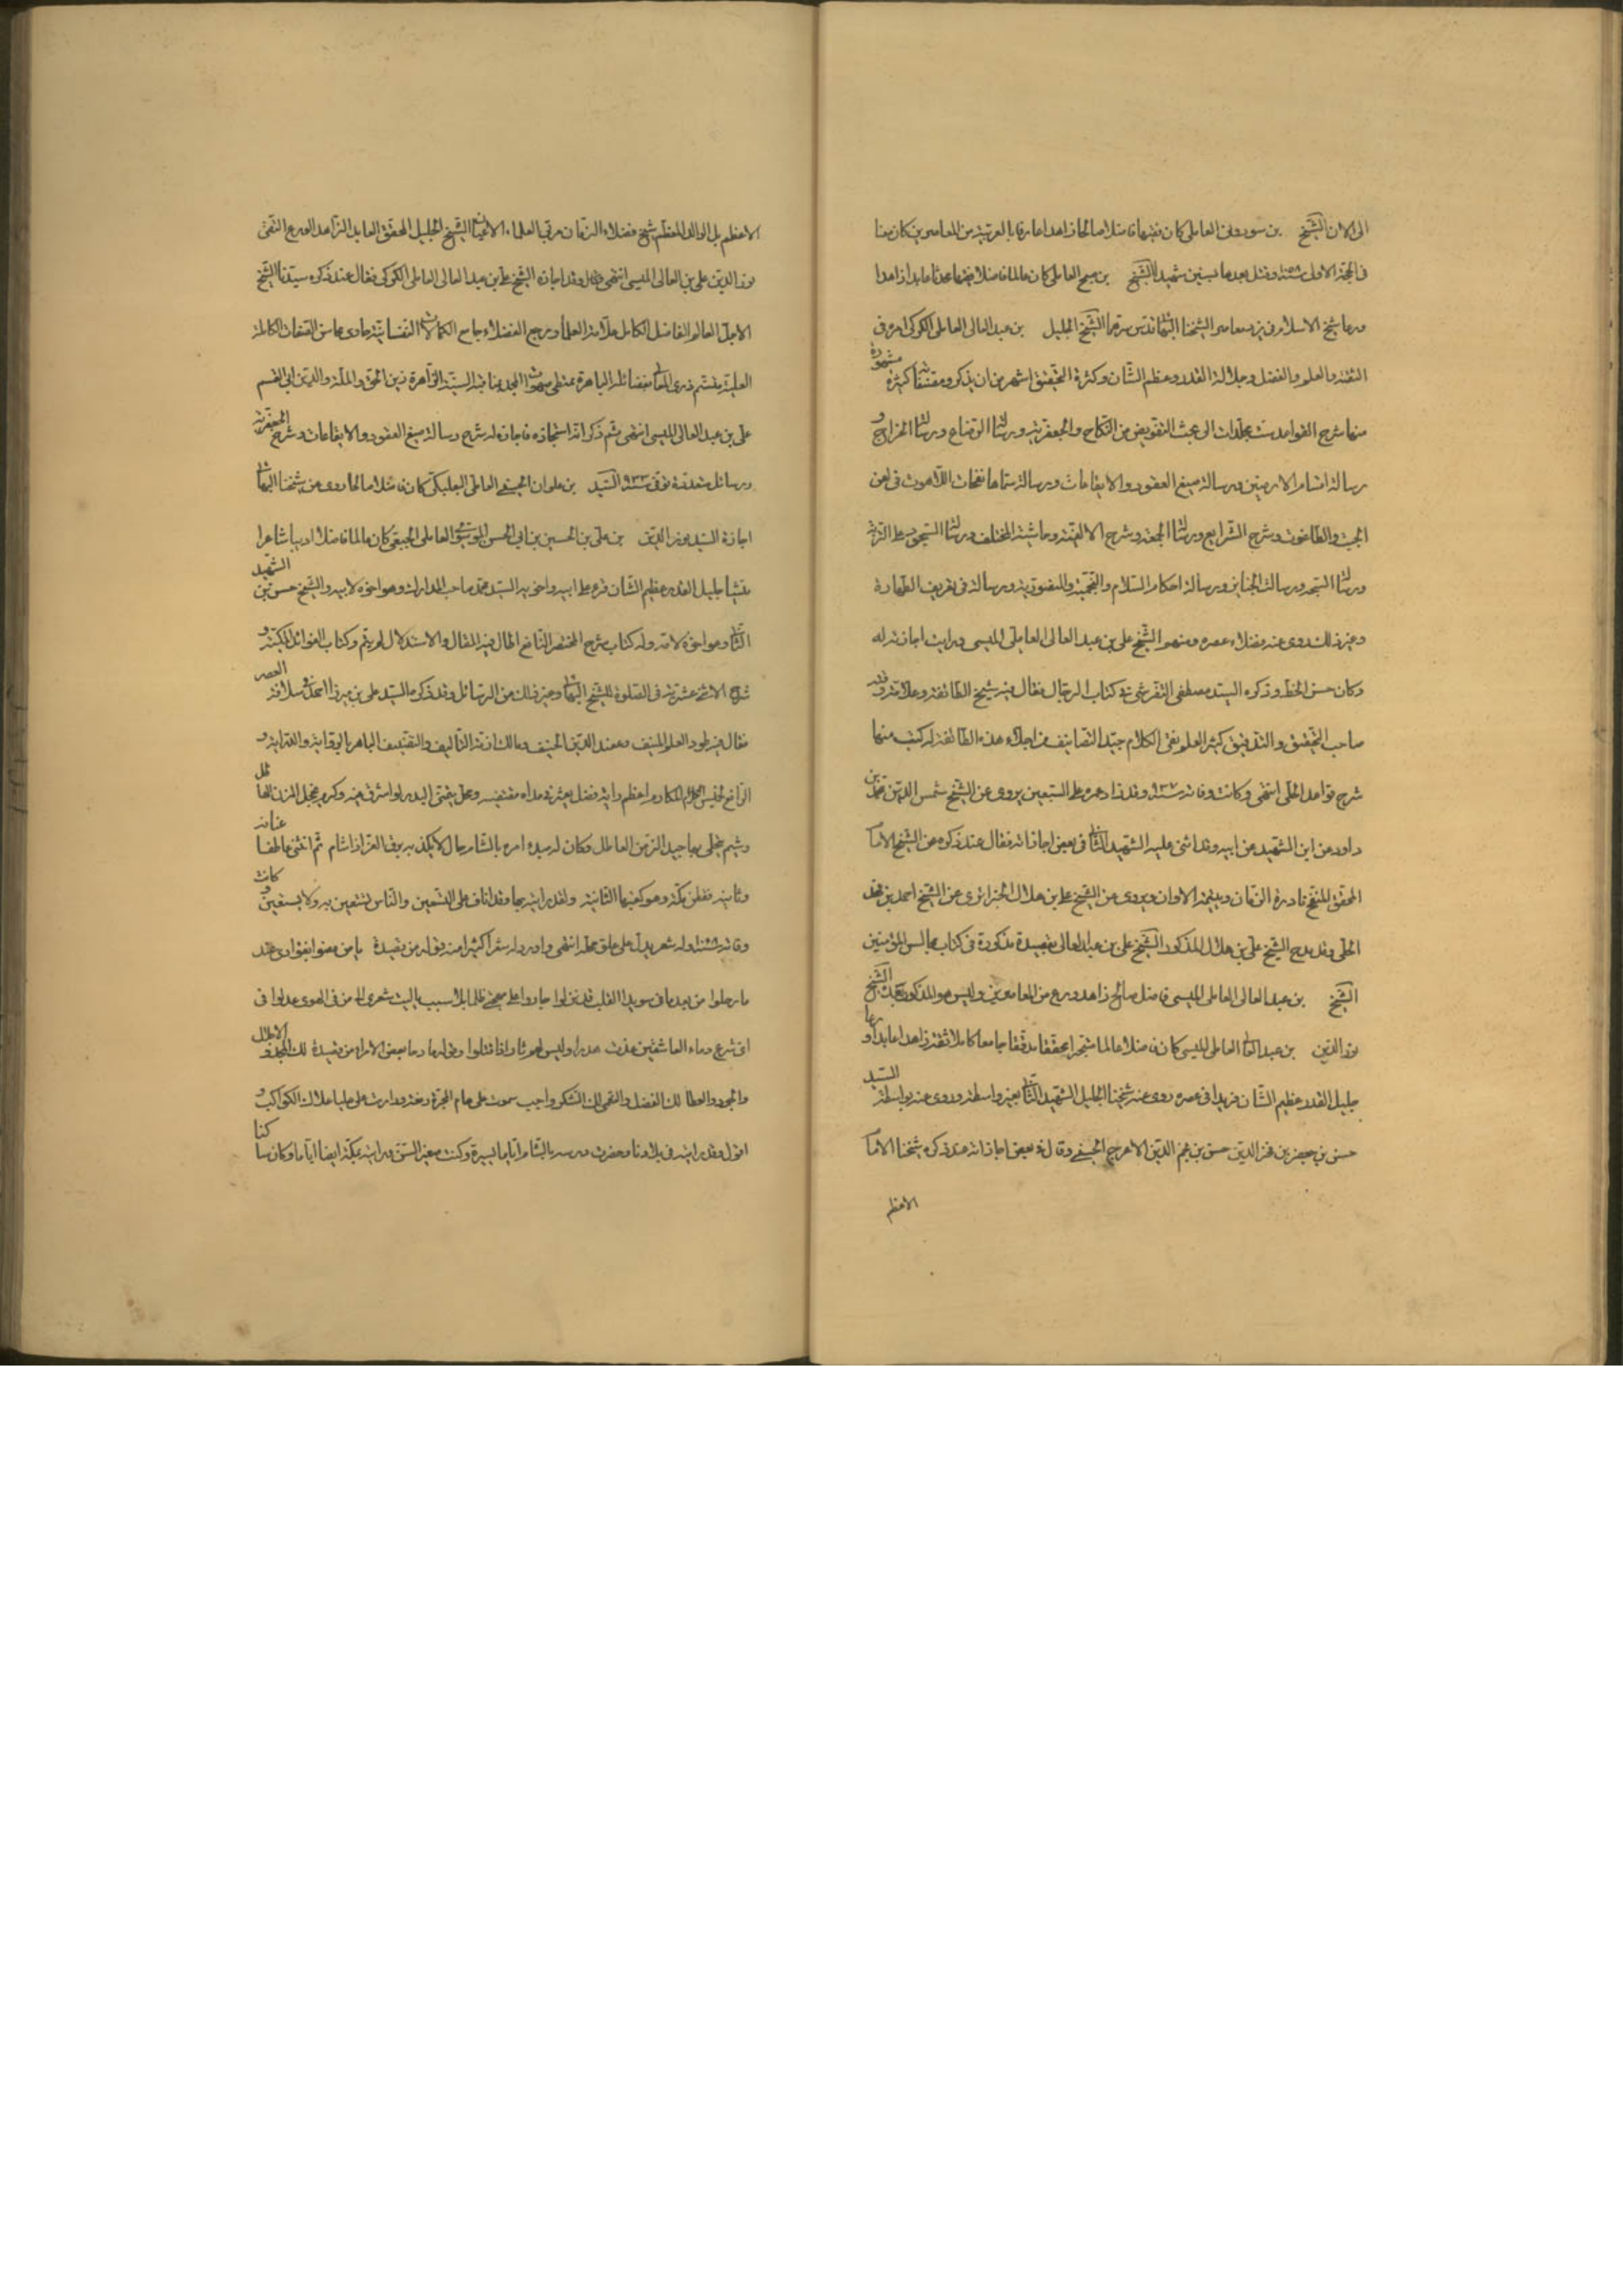 الى الان الشيخ بن سودون العاملى كان فقيها فاضلا صالحا زاهدا عارفا بالعربية من المعاصرين كان معنا
فى الحجة الاولى وقتل بعدها بسنين شهيدا الشيخ بن صبيح العاملى كان عالما فاضلا فقيها محدثا عابدا زاهدا
ورعا شيخ الاسلام فى يزد معاصر الشيخنا البهائى قدس سرهما الشيخ الجليل بن عبد العالى العاملى الكركى امره فى
الثقة والعلم والفضل وجلالة القدر وعظم الشان وكثرة التحقيق اشهر من ان يذكر ومصنفاته كثيرة مشهورة
منها شرح القواعد ست مجلدات الى بحث التفويض من النكاح والجعفرية ورسالة الرضاع ورسالة الخراج و
رسالة اقسام الارضين ورسالة صيغ العقود والايقاعات ورسالة سماها نفحات اللاهوت فى لعن
الجبت والطاغوت وشرح الشرايع ورسالة الجمعة وشرح الالفية وحاشية المختلف ورسالة السجود على التربة
ورسالة السبحة ورسالة الجنايز ورسالة احكام السلام والنجمية والمنصورية ورسالة فى تعريف الطهارة
وغير ذلك روى عنه فضلاء عصره ومنهم الشيخ على بن عبد العالى العاملى الميسى ورايت اجازته له
وكان حسن الخط وذكره السيد مصطفى التفرشى فى كتاب الرجال فقال فيه شيخ الطائفة وعلامة وقته
صاحب التحقيق والتدقيق كثير العلم نقى الكلام جيد التصانيف من اجلاء هذه الطائفة له كتب منها
شرح قواعد الحلى انتهى وكانت وفاته سنة ٩٣٧ وقد زاد عمره على السبعين يروى عن الشيخ شمس الدين محمد بن
داود عن ابن الشهيد عن ابيه وقد اثنى عليه الشهيد الثانى فى بعض اجازاته فقال عند ذكره عن الشيخ الامام
المحقق المنقح نادرة الزمان ويتيمة الاوان ويروى عن الشيخ على بن هلال الجزائرى عن الشيخ احمد بن فهد
الحلى وقد مدح الشيخ على بن هلال المذكور الشيخ على بن عبد العالى بقصيدة مذكورة فى كتاب مجالس المؤمنين
الشيخ بن عبد العالى العاملى الميسى فاضل صالح زاهد ورع من المعاصرين وليس هو المذكور بعده الشيخ
نور الدين بن عبد العالى العاملى الميسى كان فاضلا عالما متبحرا محققا مدققا جامعا كاملا ثقة زاهدا عابدا ورعا
جليل القدر عظيم الشان فريدا فى عصره روى عنه شيخنا الجليل الشهيد الثانى بغير واسطة وروى عنه بواسطة السيد
حسن بن جعفر بن فخر الدين حسن بن نجم الدين الاعرج الحسينى وقال فى بعض اجازاته عند ذكره شيخنا الامام
الاعظم
الاعظم بل الوالد المعظم شيخ فضلاء الزمان ومربى العلماء الاعيان الشيخ الجليل المحقق العابد الزاهد الورع التقى
نور الدين على بن العالى الميسى انتهى وقد اجازه الشيخ على بن عبد العالى العاملى الكركى فقال عند ذكره سيدنا الشيخ
الاجل العالم الفاضل الكامل علامة العلماء ومرجع الفضلاء جامع الكمالات النفسانية حاوى محاسن الصفات الكاملة
العلية متسنم ذرى المعالى بفضائله الباهرة ممتطى صهوات المجد بمناقبه السنية الزاهرة زين الحق والملة والدين ابى القسم
على بن عبد العالى الميسى انتهى ثم ذكر انه استجازه فاجازه له شرح رسالة صيغ العقود والايقاعات وشرح الجعفرية
ورسائل متعددة توفى سنة ٩٣٣ السيد بن علوان الحسينى العاملى البعلبكى كان فاضلا صالحا روى عن شيخنا البهائى
اجازة السيد نور الدين بن على بن الحسين بن ابى الحسن الموسوى العاملى الجبعى كان عالما فاضلا اديبا شاعرا
منشيا جليل القدر عظيم الشان قرء على ابيه واخويه السيد محمد صاحب المدارك وهو اخوه لابيه والشيخ حسن بن الشهيد
الثانى وهو اخوه لامه وله كتاب شرح المختصر النافع اطال فيه المقال والاستدلال لم يتم وكتاب الفوائد المكية و
شرح الاثنى عشرية فى الصلوة للشيخ البهائى وغير ذلك من الرسائل وقد ذكره السيد على بن ميرزا احمد فى سلافة العصر
فقال فيه طود العلم المنيف وعضد الدين الحنيف ومالك ازمة التاليف والتصنيف الباهر بالرواية والدراية و
الرافع لخميس المكارم اعظم راية فضل يعثر فى مداه مقتفيه ومحل يتمنى البدر لو اشرف فيه وكرم يخجل المزن الهاطل
وشيم يتحلى بها جيد الزمن العاطل وكان له فى مبدء امره بالشام مجال لا يكذبه بارق العز اذا شام ثم انثنى عاطفا عنانه
وثانيه فقطن بمكة وهو كعبتها الثانية ولقد رايته بها وقد اناف على التسعين والناس تستعين به ولا يستعين وكانت
وفاته وله شعر يدل على علو محله انتهى واورد له شعرا كثيرا منه قوله من قصيدة يا من مضوا بفؤادى عند
ما رحلوا من بعد ما فى سويدا القلب قد نزلوا جاروا على مهجتى ظلما بلا سبب يا ليت شعرى الى من فى الهوى عدلوا فى
اى شرع دماء العاشقين غدت هدرا وليس لهم ثار اذا قتلوا وقوله مادحا بعض الامراء من قصيدة لك المجد والاجلال
والجود والعطا لك الفضل والنعمى لك الشكر واجب سموت على هام المجرة رفعة ودارت على علياء علاك الكواكب و
اقول وقد رايته فى بلادنا وحضرت درسه بالشام اياما يسيرة وكنت صغير السن ورايته بمكة ايضا اياما وكان ساكنا